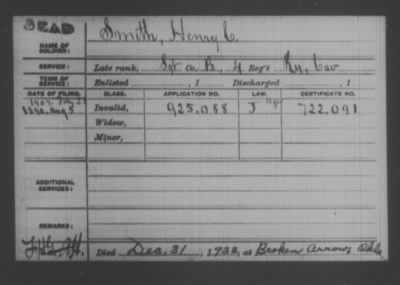 DEAD
NAME OF SOLDIER: Smith, Henry C.
SERVICE: Late rank, Sgt Co. B, 4 Reg't Ky. Cav
TERM OF SERVICE: Enlisted , 1 Discharged , 1
DATE OF FILING. CLASS. APPLICATION NO. LAW. CERTIFICATE NO.
1890. Aug 5 Invalid, 925.088 J 722.091
Widow,
Minor,
ADDITIONAL SERVICES:
REMARKS:
Died Dec. 31, 1922, at Broken Arrow, Okla